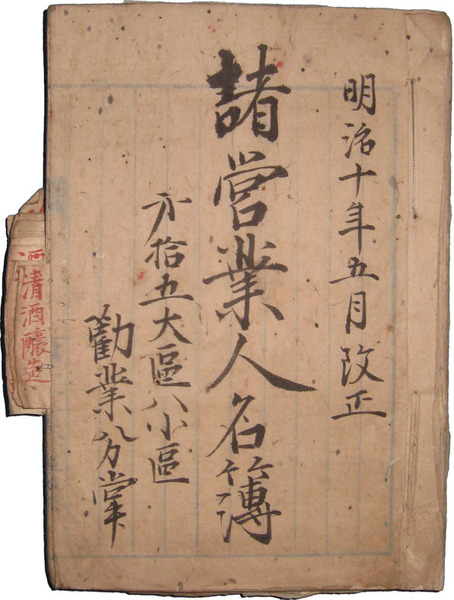 明治十年五月改正
諸営業人名簿
㐧拾五大區八小區
勸業分掌
清酒釀造